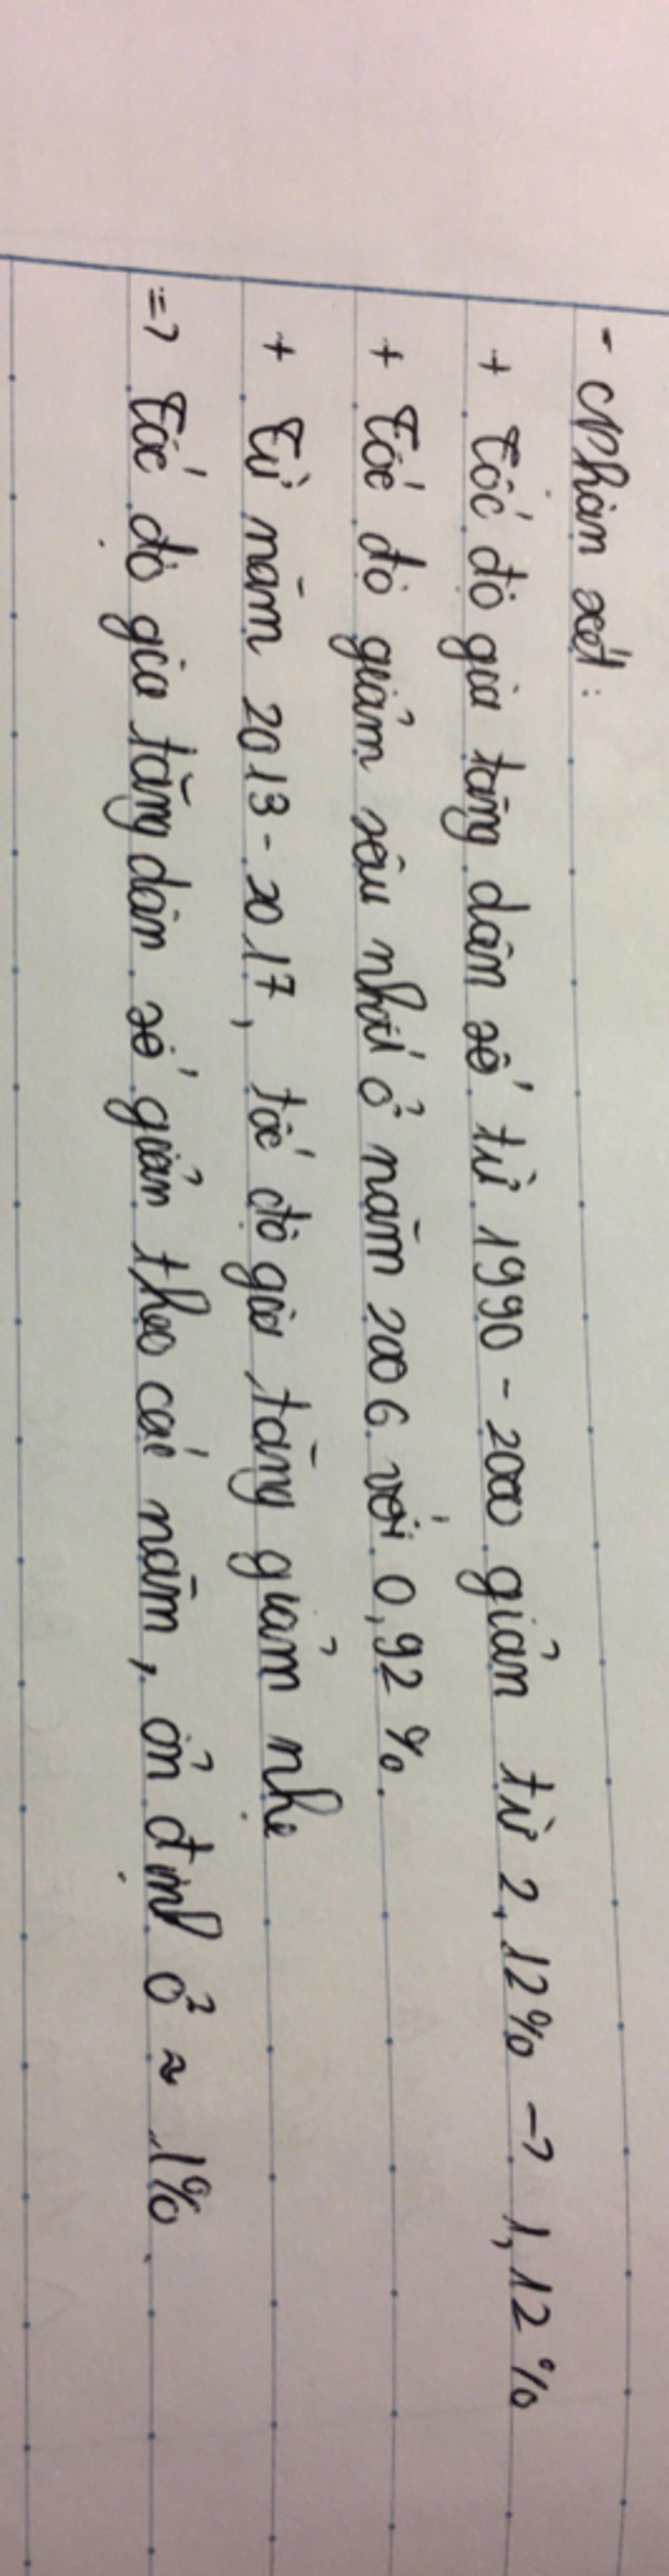 - Nhận xét:
+ Tốc độ gia tăng dân số từ 1990 - 2000 giản từ 2,12% → 1,12%
+ Tốc độ giảm sâu nhất ở năm 2006 với 0,92%.
+ Từ năm 2013 - 2017, tốc độ gia tăng giảm nhẹ
=> Tốc độ gia tăng dân số giản theo các năm, ổn định ở ≈ 1%.